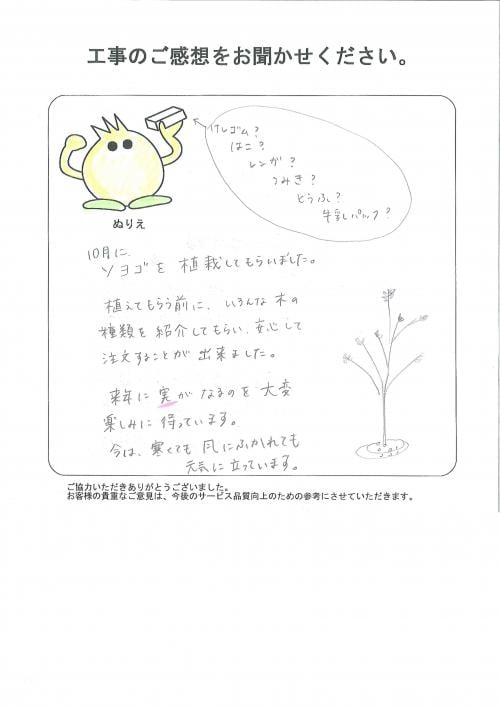 工事のご感想をお聞かせください。
けしゴム?
はこ?
レンガ?
つみき?
とうふ?
牛乳パック?
ぬりえ
10月に
ソヨゴを植栽してもらいました。
植えてもらう前に、いろんな木の
種類を紹介してもらい、安心して
注文することが出来ました。
来年に実がなるのを大変
楽しみに待っています。
今は、寒くても風にふかれても
元気に立っています。
ご協力いただきありがとうございました。
お客様の貴重なご意見は、今後のサービス品質向上のための参考にさせていただきます。